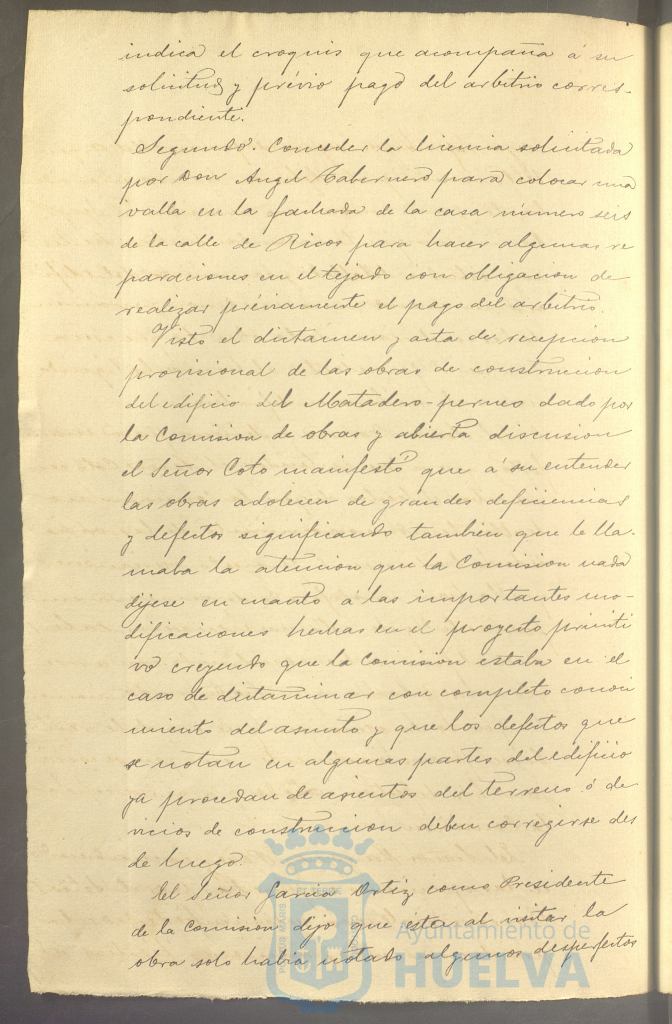 indica el croquis que acompaña á su
solicitud y prévio pago del arbitrio corres-
pondiente.
Segundo. Conceder la licencia solicitada
por Don Angel Tabernero para colocar una
valla en la fachada de la casa número seis
de la calle de Ricos para hacer algunas re
paraciones en el tejado con obligacion de
realizar préviamente el pago del arbitrio.
Visto el dictamen y acta de recepcion
provisional de las obras de construccion
del edificio del Matadero-perneo dado por
la Comision de obras y abierta discusion
el Señor Coto manifestó que á su entender
las obras adolecen de grandes deficiencias
y defectos significando tambien que le lla-
maba la atencion que la Comision nada
dijese en cuanto á las importantes mo-
dificaciones hechas en el proyecto primiti
vo creyendo que la Comision estaba en el
caso de dictaminar con completo conoci
miento del asunto y que los defectos que
se notan en algunas partes del edificio
ya procedan de asientos del terreno ó de
vicios de construccion deben corregirse des
de luego.
El Señor Garcia Ortiz como Presidente
de la Comision dijo que esta al visitar la
obra solo habia notado algunos desperfectos
Ayuntamiento de
HUELVA